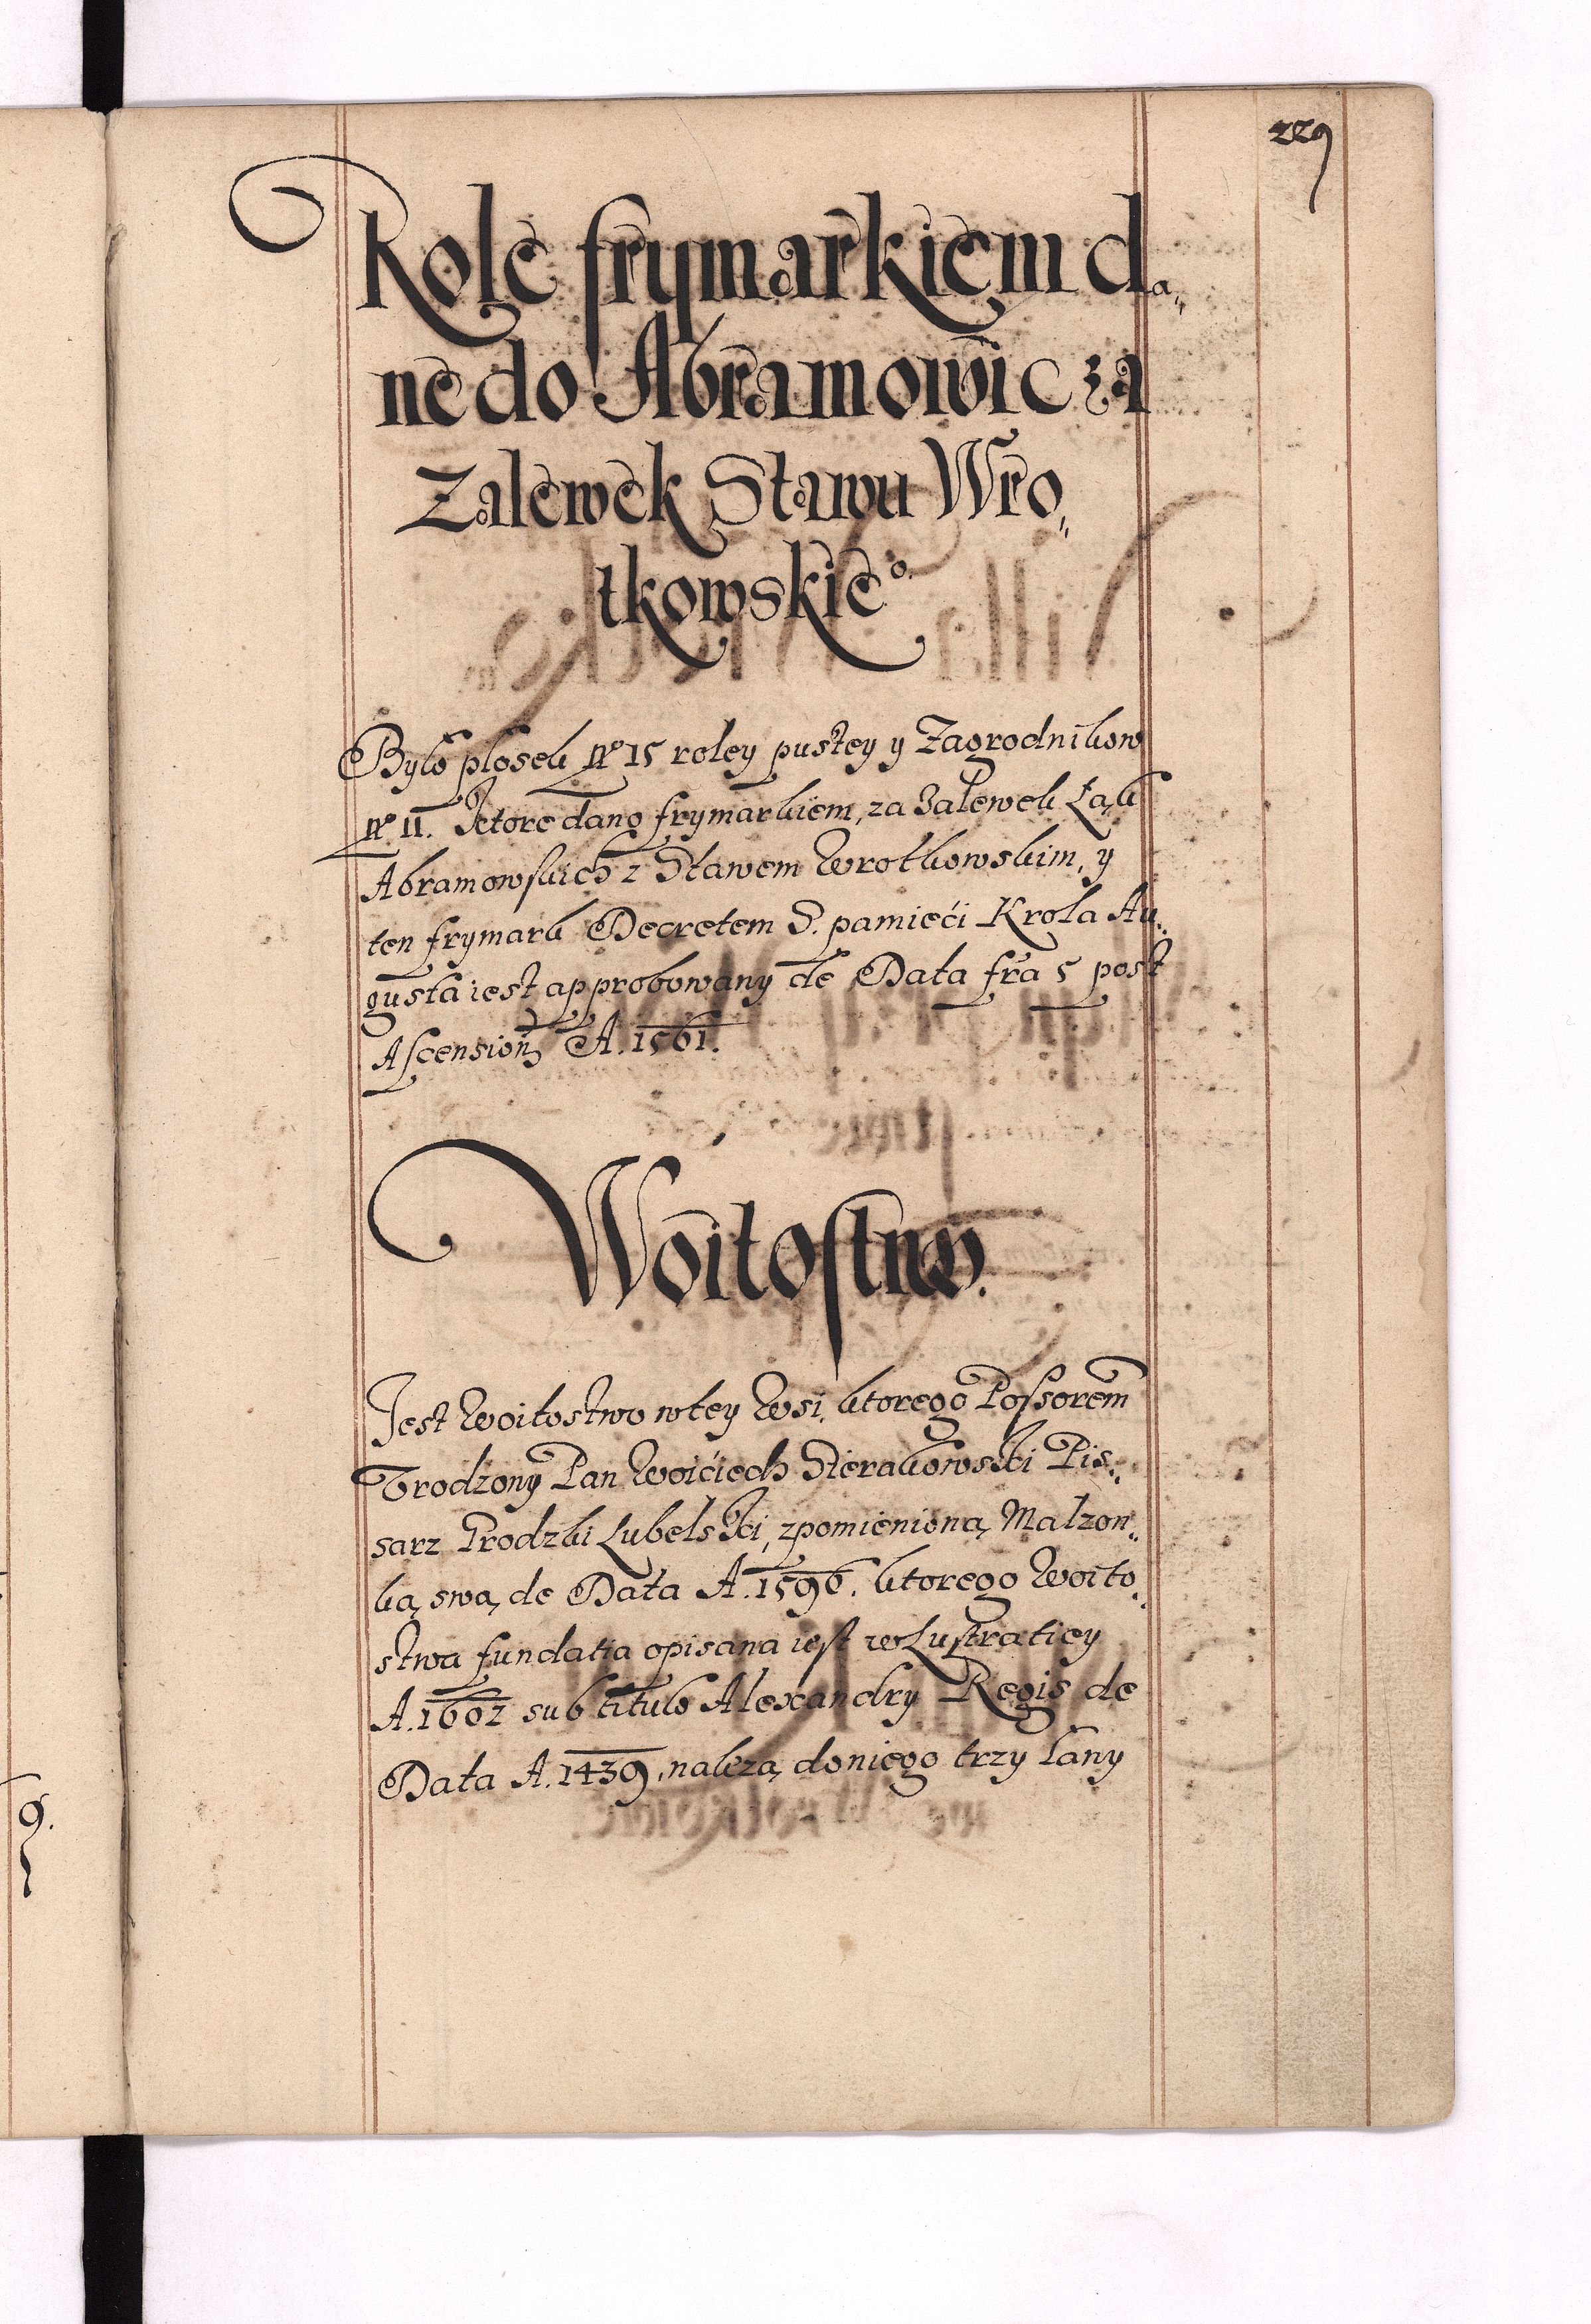 229
Role frymarkiem da„
ne do Abramowic za
Zalewek Stawu Wro„
tkowskieº.
Bylo plosek nº 15 roley pustey y Zagrodnikow
nº 11. Ktore dano frymarkiem, za Zalewek Łąk
Abramowskich z Stawem Wrotkowskim, y
ten frymark Decretem S. pamieći Krola Au„
gusta iest approbowany de Data fra 5 post
Ascension A. 1561.
Woitostwo.
Jest Woitostwo w tey Wsi, ktorego Possorem
Vrodzony Pan Woićiech Sierakowski Pis„
sarz Grodzki Lubelski, z pomienioną Malzon„
ką swą de Data A. 1596. ktorego Woito„
stwa fundatia opisana iest w Lustratiey
A. 1602 sub titulo Alexandry Regis de
Data A. 1439, nalezą do niego trzy Łany
9.